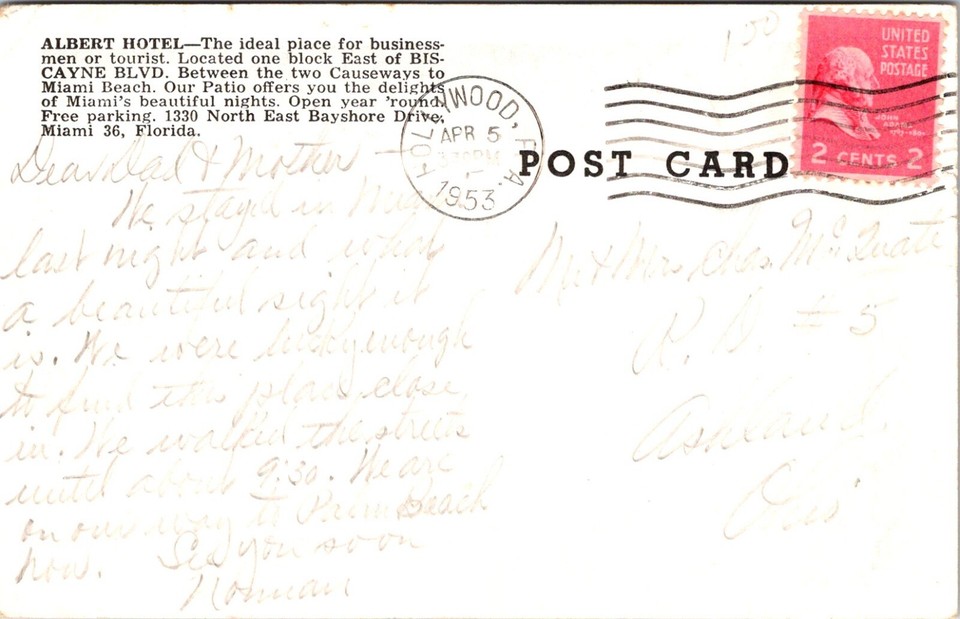 ALBERT HOTEL—The ideal place for business-
men or tourist. Located one block East of BIS-
CAYNE BLVD. Between the two Causeways to
Miami Beach. Our Patio offers you the delights
of Miami's beautiful nights. Open year 'round.
Free parking. 1330 North East Bayshore Drive,
Miami 36, Florida.
Dear Dad & Mother —
We stayed in
last night and what
a beautiful sight it
is. We were lucky enough
to find this place close
in. We walked the streets
until about 9:30. We are
on our way to Palm Beach
now. See you soon
Norman
HOLLYWOOD, FLA.
APR 5
1953
POST CARD
1 50
UNITED
STATES
POSTAGE
JOHN
ADAMS
2 CENTS 2
Mr & Mrs. Chas. McQuate
R. D. # 5
Ashland
Ohio